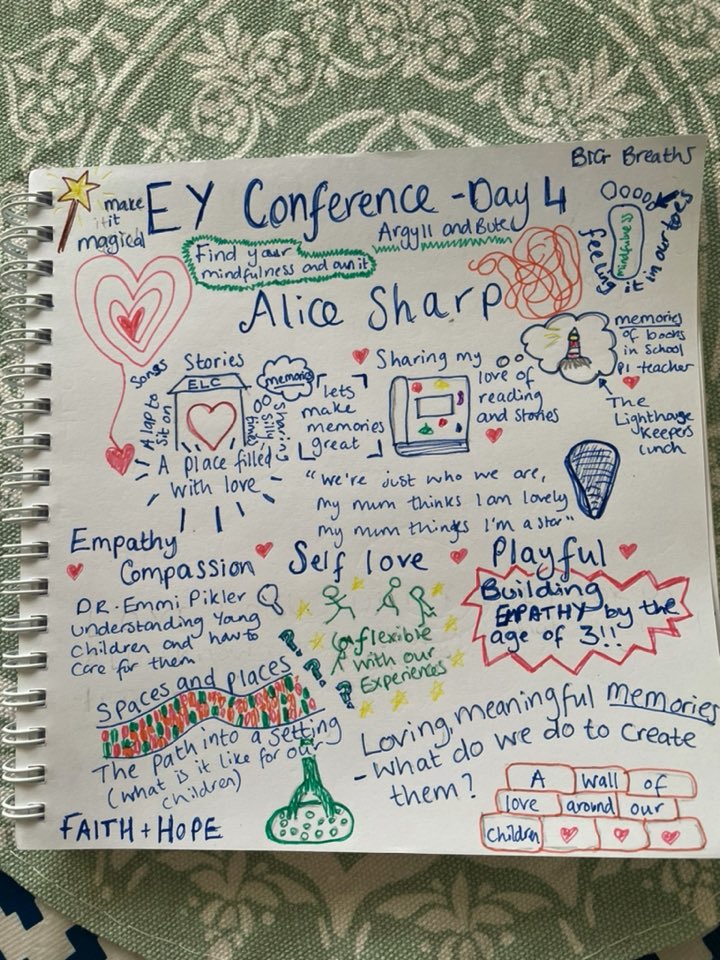 BIG Breaths
make
it
magical
EY Conference - Day 4
Argyll and Bute
Find your
mindfulness and own it
feeling
mindfulness
it in our toes
Alice Sharp
memories
of books
in School
P1 teacher
The
Lighthouse
Keepers
lunch
Songs
Stories
A lap to
sit on
ELC
memories
Sharing
silly
times
A place filled
with love
lets
make
memories
great
Sharing my
love of
reading
and stories
"we're just who we are,
my mum thinks I am lovely
my mum things I'm a star"
Empathy
Compassion
Self love
Playful
DR. Emmi Pikler
understanding Young
Children and how to
Care for them
flexible
with our
Experiences
Building
EMPATHY by the
age of 3!!
Spaces and places
The path into a setting
(what is it like for our
children)
Loving, meaningful memories
- What do we do to create
them?
A wall of
love around our
Children
FAITH + HOPE